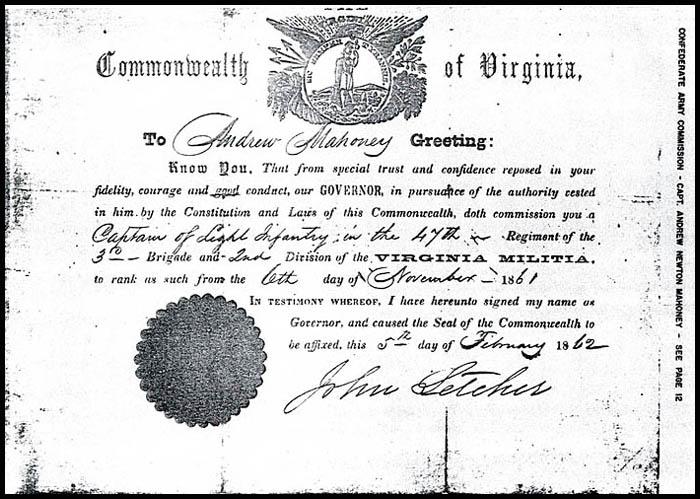 Commonwealth of Virginia,
To Andrew Mahoney Greeting:
Know You, That from special trust and confidence reposed in your
fidelity, courage and good conduct, our GOVERNOR, in pursuance of the authority vested
in him by the Constitution and Laws of this Commonwealth, doth commission you a
Captain of Light Infantry, in the 47th Regiment of the
3rd Brigade and 2nd Division of the VIRGINIA MILITIA,
to rank as such from the 6th day of November 1861
IN TESTIMONY WHEREOF, I have hereunto signed my name as
Governor, and caused the Seal of the Commonwealth to
be affixed, this 5th day of February 1862
John Letcher
CONFEDERATE ARMY COMMISSION - CAPT. ANDREW NEWTON MAHONEY - SEE PAGE 12